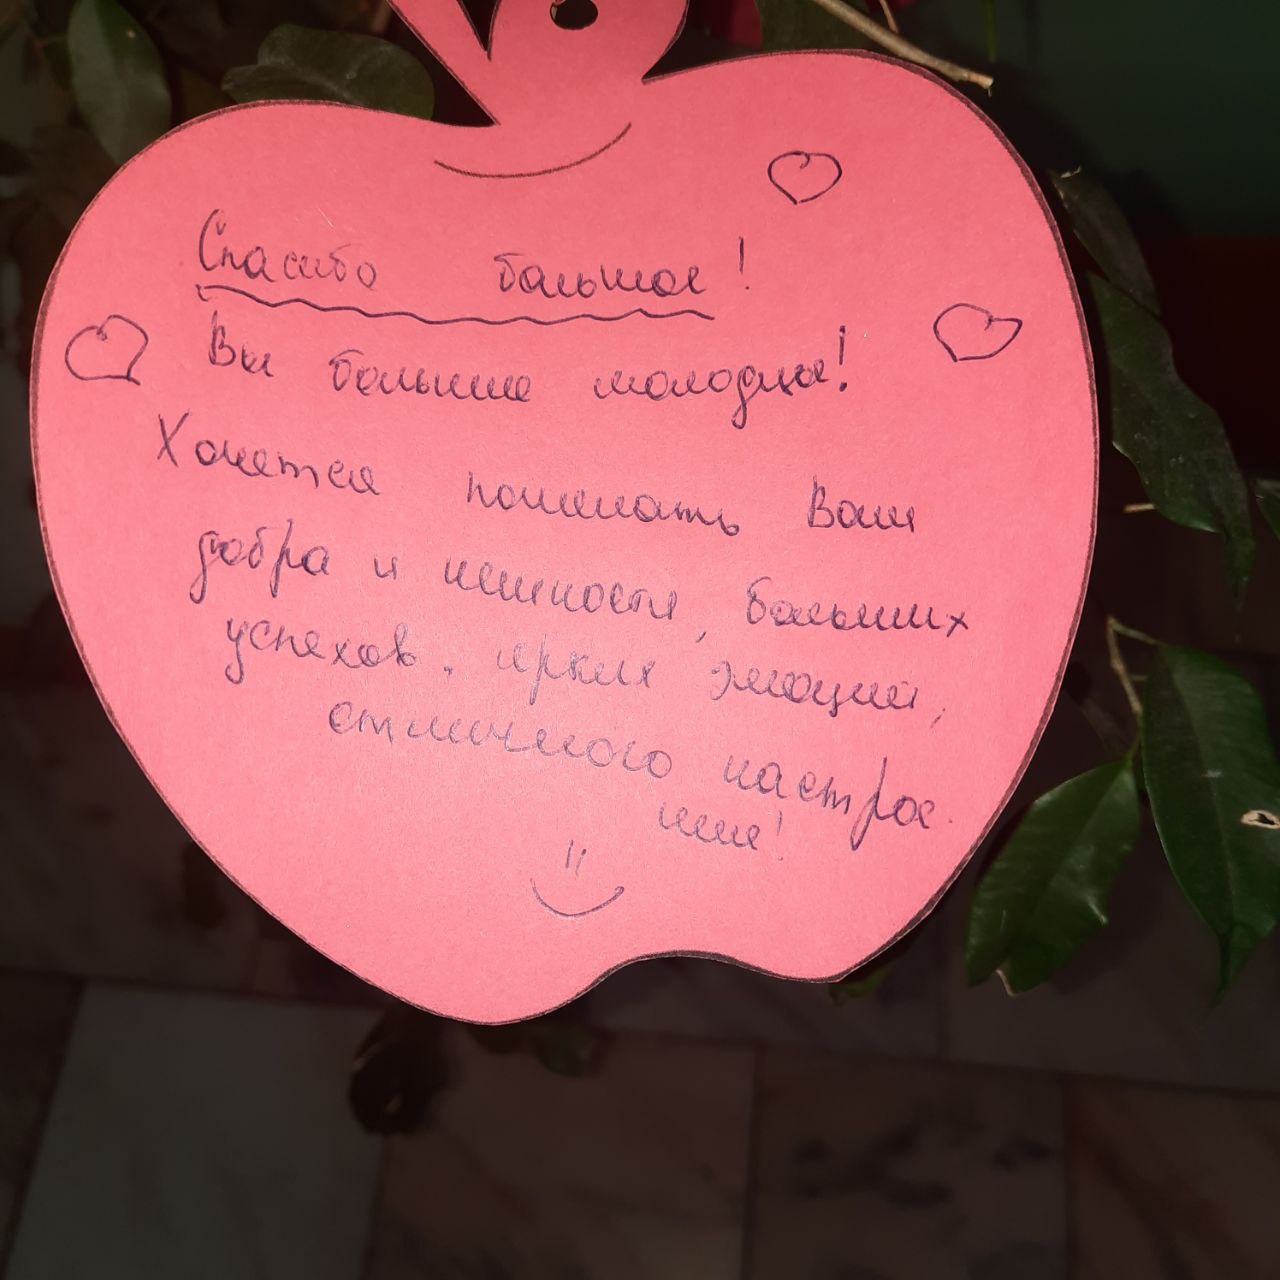 Спасибо большое!
Вы большие молодцы!
Хочется пожелать Вам
добра и нежности, больших
успехов, ярких эмоций,
отличного настрое
ния!